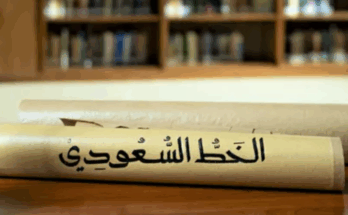 الخَطُّ السُّعُودِيُّ